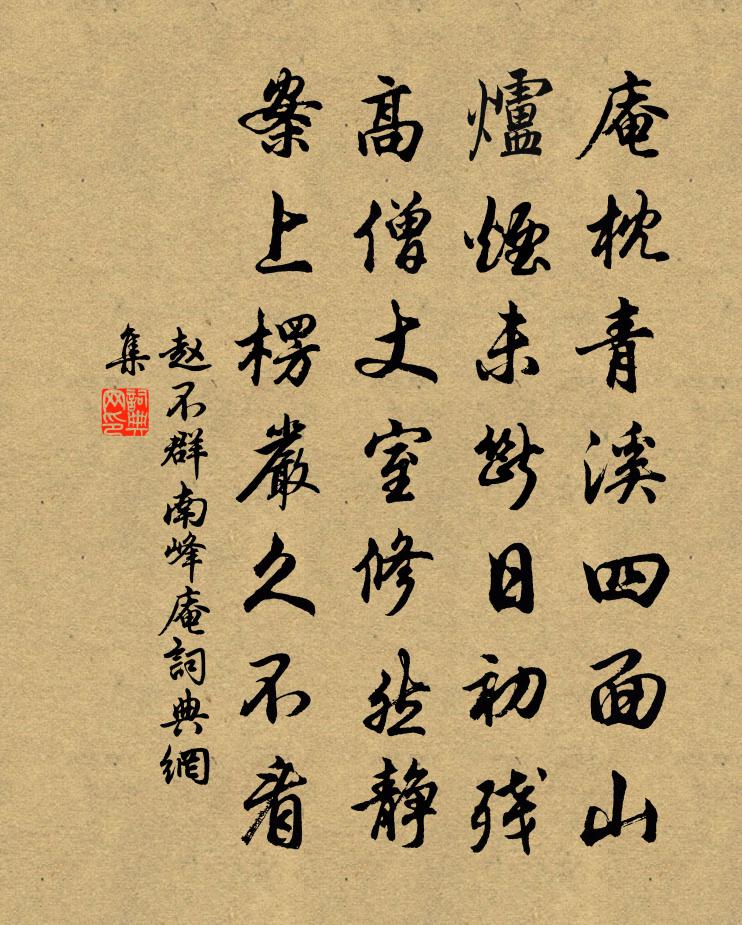 庵枕青溪四面山
爐煙未斷日初殘
高僧丈室修然靜
案上楞嚴久不看
赵不群南峰庵詞典網
集
詞典
网印